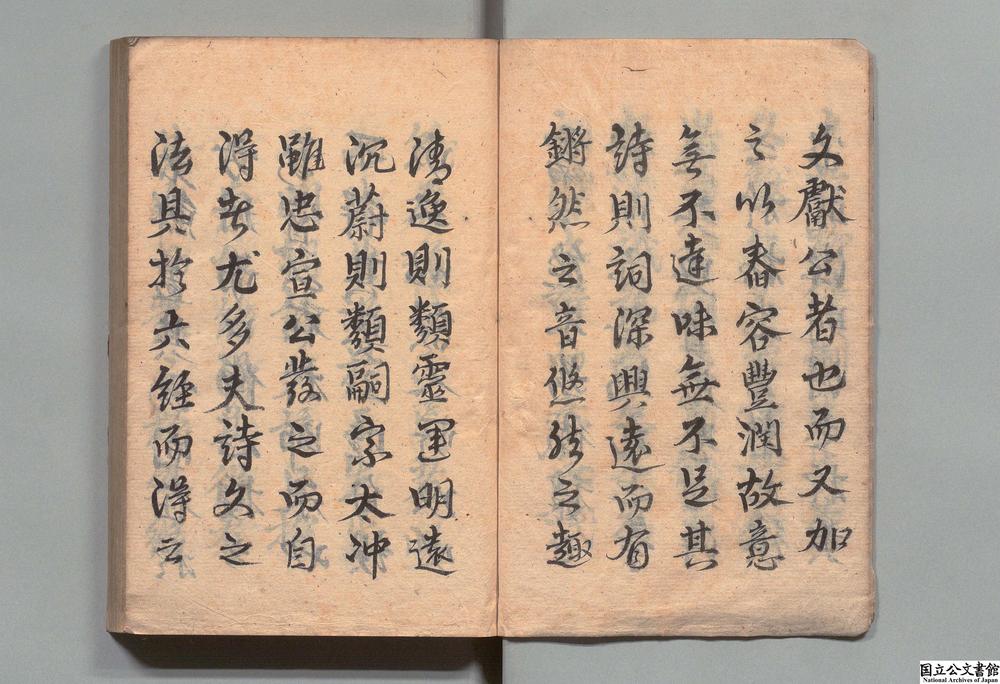 文獻公者也而又加
之以春容豐潤故意
無不達味無不足其
詩則詞深興遠而有
鏘然之音悠然之趣
清逸則類靈運明遠
沉蔚則類嗣宗太冲
雖忠宣公發之而自
得者尤多夫詩文之
法具於六經而得之
国立公文書館
National Archives of Japan